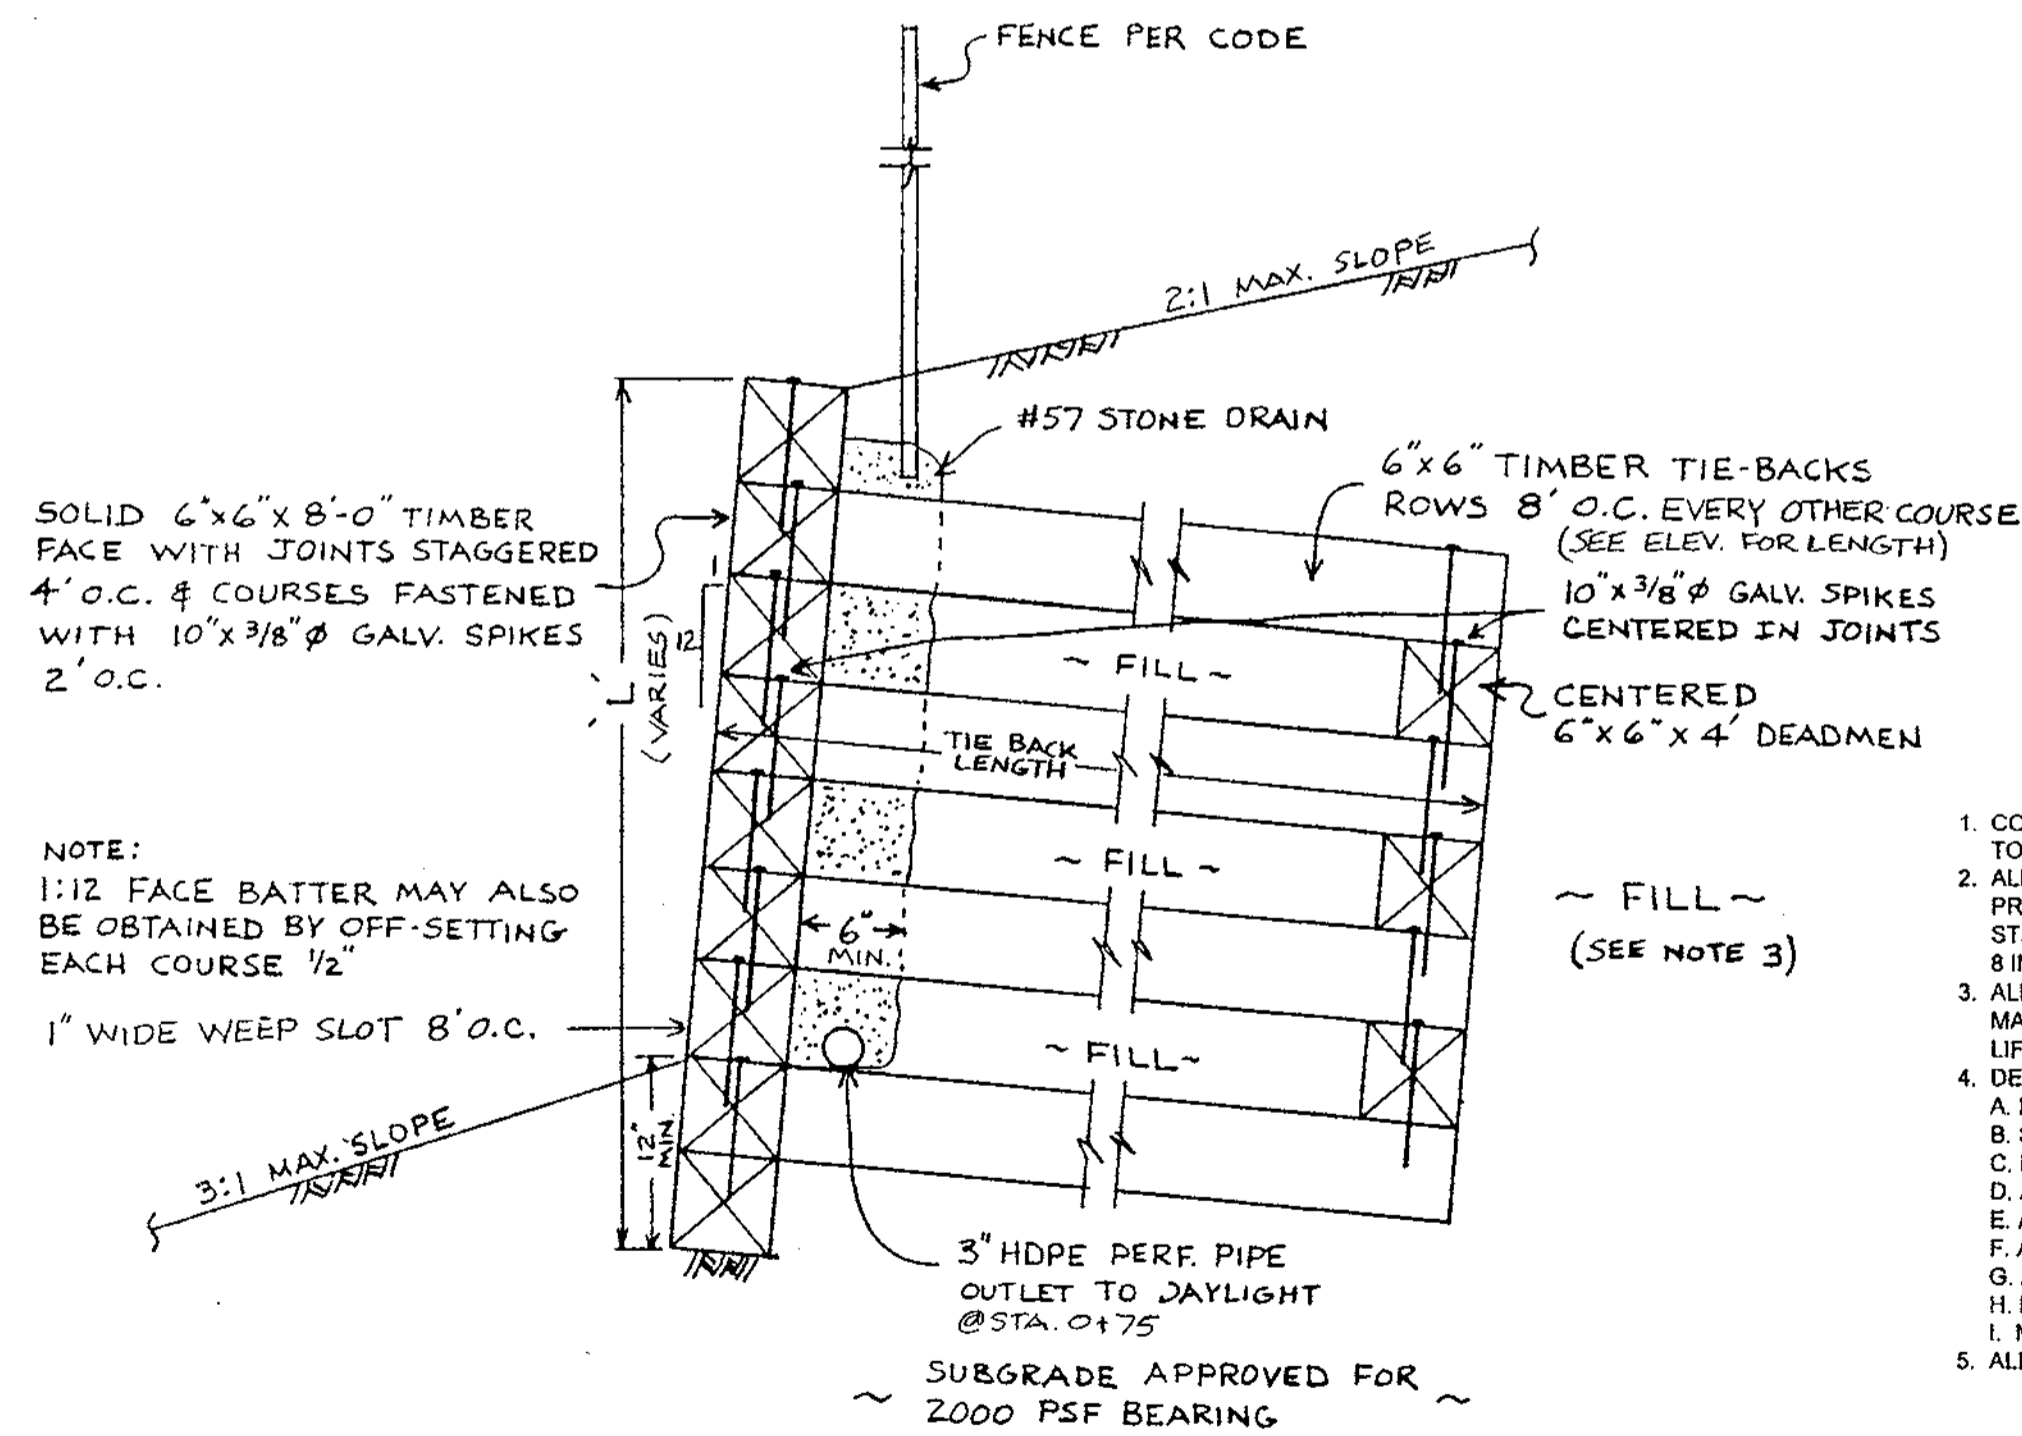 FENCE PER CODE
2:1 MAX. SLOPE
#57 STONE DRAIN
6"x6" TIMBER TIE-BACKS
ROWS 8' O.C. EVERY OTHER COURSE
(SEE ELEV. FOR LENGTH)
10"x3/8"ø GALV. SPIKES
CENTERED IN JOINTS
CENTERED
6"x6"x4' DEADMEN
SOLID 6"x6"x8'-0" TIMBER
FACE WITH JOINTS STAGGERED
4' O.C. & COURSES FASTENED
WITH 10"x3/8"ø GALV. SPIKES
2' O.C.
1
12
'L'
(VARIES)
~ FILL ~
TIE BACK
LENGTH
~ FILL ~
6"
MIN.
~ FILL ~
~ FILL ~
(SEE NOTE 3)
NOTE:
1:12 FACE BATTER MAY ALSO
BE OBTAINED BY OFF-SETTING
EACH COURSE 1/2"
1" WIDE WEEP SLOT 8' O.C.
3:1 MAX. SLOPE
12"
MIN.
3" HDPE PERF. PIPE
OUTLET TO DAYLIGHT
@STA. 0+75
~ SUBGRADE APPROVED FOR ~
2000 PSF BEARING
1. CO
TO
2. ALL
PR
ST.
8 IN
3. ALL
MA
LIF
4. DE
A.
B.
C.
D.
E.
F.
G.
H.
I.
5. ALL